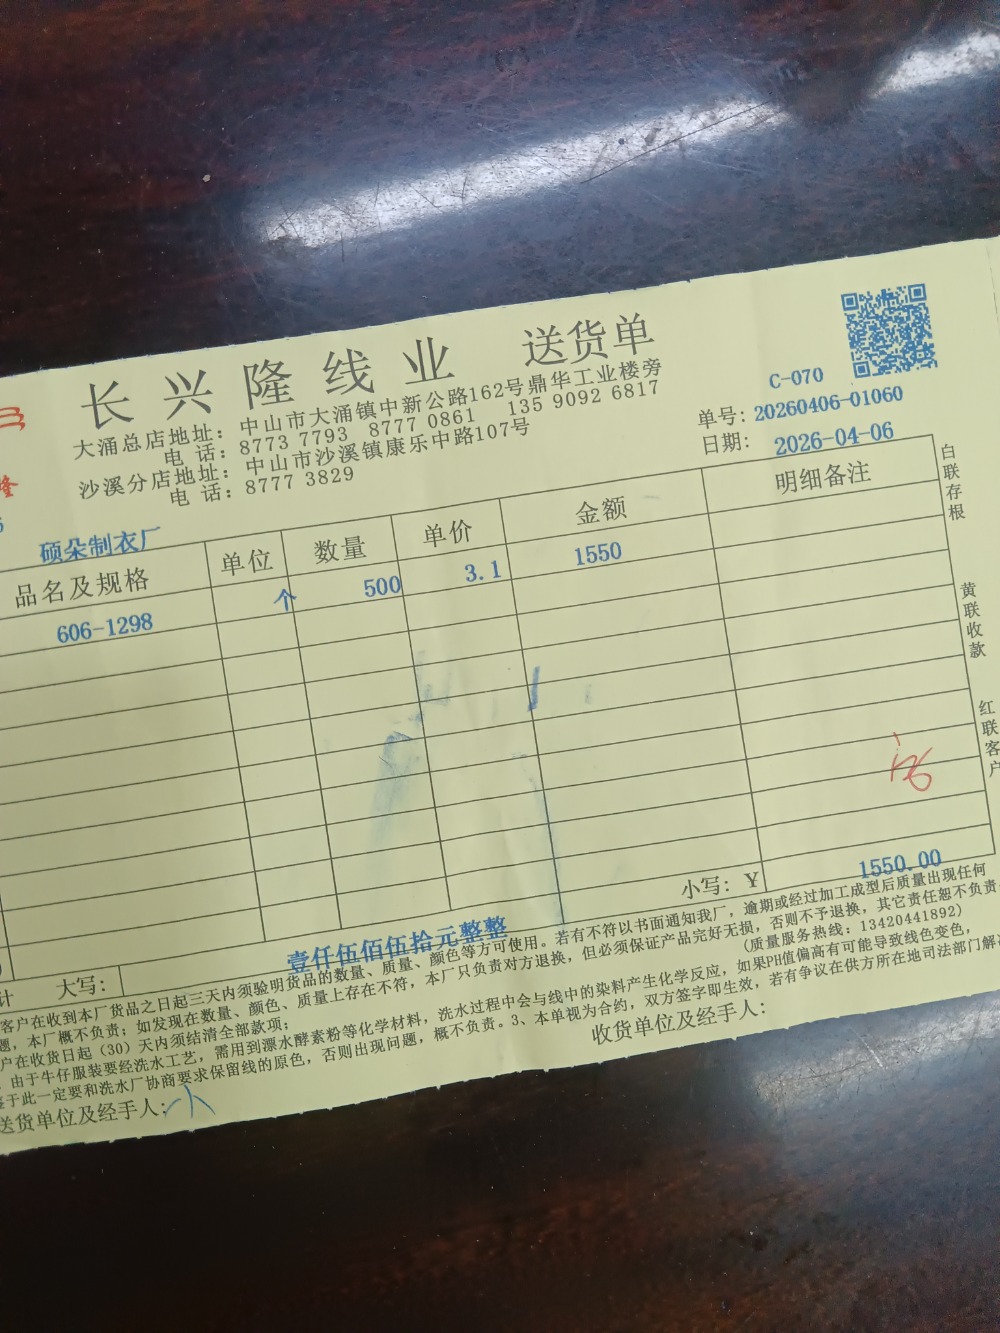 长兴隆线业 送货单
大涌总店地址：中山市大涌镇中新公路162号鼎华工业楼旁
电 话：8773 7793 8777 0861 135 9092 6817
沙溪分店地址：中山市沙溪镇康乐中路107号
电 话：8777 3829
C-070
单号：20260406-01060
日期：2026-04-06
隆
硕朵制衣厂
品名及规格 单位 数量 单价 金额 明细备注
606-1298 个 500 3.1 1550
白联存根
黄联收款
红联客户
计 大写：壹仟伍佰伍拾元整整 小写：￥1550.00
客户在收到本厂货品之日起三天内须验明货品的数量、质量、颜色等方可使用。若有不符以书面通知我厂，逾期或经过加工成型后质量出现任何
题，本厂概不负责；如发现在数量、颜色、质量上存在不符，本厂只负责对方退换，但必须保证产品完好无损，否则不予退换，其它责任恕不负责。
户在收货日起（30）天内须结清全部款项； （质量服务热线：13420441892）
由于牛仔服装要经洗水工艺，需用到漂水酵素粉等化学材料，洗水过程中会与线中的染料产生化学反应，如果PH值偏高有可能导致线色变色，
鉴于此一定要和洗水厂协商要求保留线的原色，否则出现问题，概不负责。3、本单视为合约，双方签字即生效，若有争议在供方所在地司法部门解决
送货单位及经手人：小 收货单位及经手人：